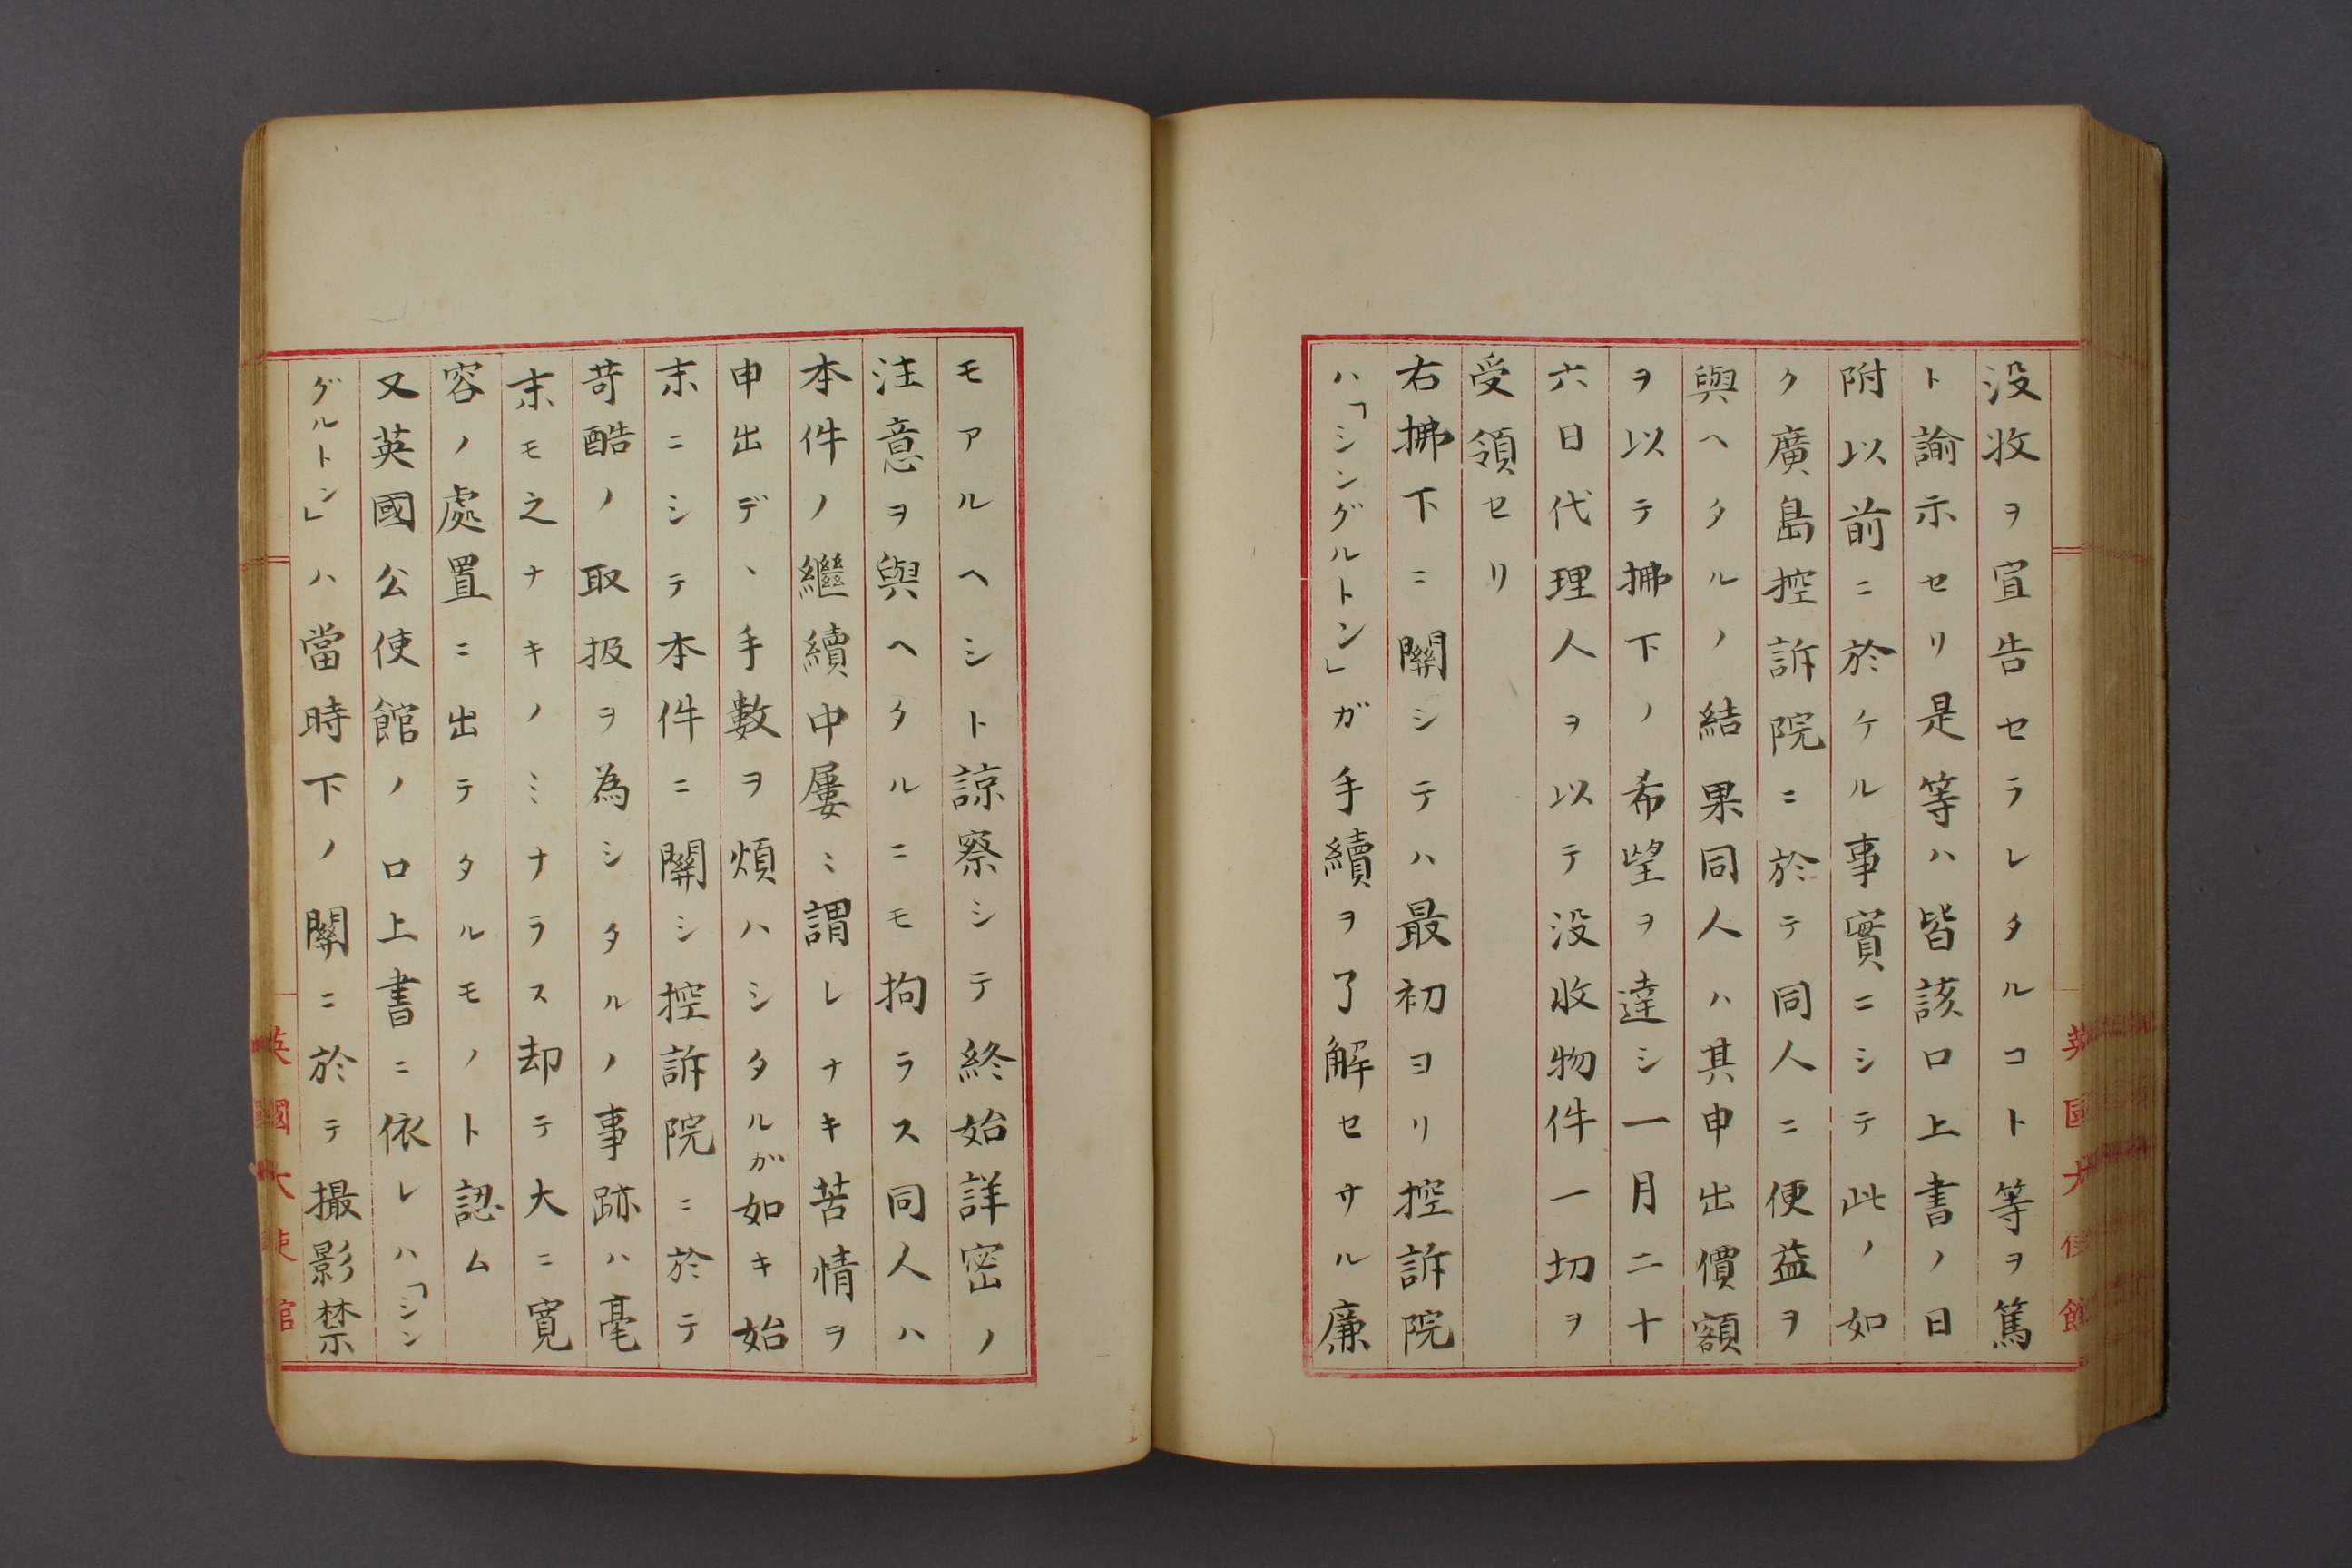 没收ヲ宣告セラレタルコト等ヲ篤
ト諭示セリ是等ハ皆該口上書ノ日
附以前ニ於ケル事實ニシテ此ノ如
ク廣島控訴院ニ於テ同人ニ便益ヲ
與ヘタルノ結果同人ハ其申出價額
ヲ以テ拂下ノ希望ヲ達シ一月二十
六日代理人ヲ以テ没收物件一切ヲ
受領セリ
右拂下ニ關シテハ最初ヨリ控訴院
ハ「シングルトン」ガ手續ヲ了解セサル廉
モアルヘシト諒察シテ終始詳密ノ
注意ヲ與ヘタルニモ拘ラス同人ハ
本件ノ繼續中屢〻謂レナキ苦情ヲ
申出デヽ手數ヲ煩ハシタルガ如キ始
末ニシテ本件ニ關シ控訴院ニ於テ
苛酷ノ取扱ヲ為シタルノ事跡ハ毫
末モ之ナキノミナラス却テ大ニ寛
容ノ處置ニ出テタルモノト認ム
又英國公使館ノ口上書ニ依レハ「シン
グルトン」ハ當時下ノ關ニ於テ撮影禁
英國大使館
英國大使館